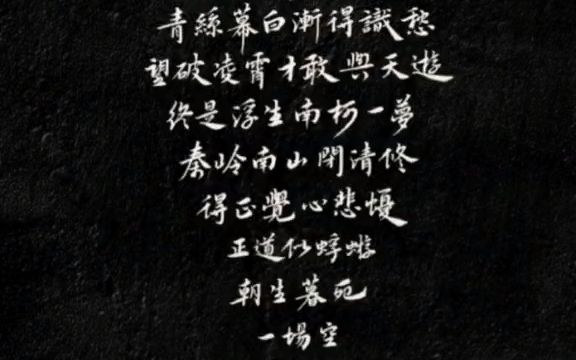 青絲幕白漸得識愁
望破凌霄才敢與天遊
終是浮生南柯一夢
秦岭南山閉清修
得正覺心悲懮
正道似蜉蝣
朝生暮死
一場空